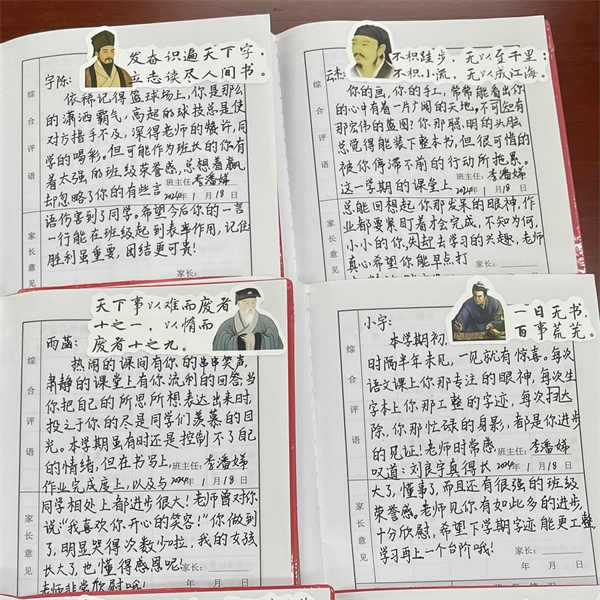 发奋识遍天下字，
立志读尽人间书。
宇陈：
依稀记得篮球场上，你是那么
的潇洒霸气，高超的球技总是使
对方措手不及，深得老师的赞许，同
学的喝彩。但可能作为班长的你有
着太强的班级荣誉感，总想着赢，
却忽略了你的有些言
班主任：李潘娣
2024年1月18日
语伤害到了同学。希望今后你的一言
一行能在班级起到表率作用，记住
胜利虽重要，团结更可贵！
家长：
综合评语
家长意见
不积跬步，无以至千里；
不积小流，无以成江海。
你的画，你的手工，常常能看出你
的心中有着一片广阔的天地，不可知有
那宏伟的蓝图？你那聪明的头脑
总觉得能装下整本书，但很可惜的
被你停滞不前的行动所拖累。
这一学期的课堂上
班主任：李潘娣
2024年1月18日
总能回想起你那发呆的眼神，作
业都要紧盯着才会完成，不知为何，
小小的你，失去学习的兴趣，老师
真心希望你能早点打
家长：
综合评语
家长意见
天下事以难而废者
十之一，以惰而
废者十之九。
雨菡：
热闹的课间有你的串串笑声，
肃静的课堂上有你流利的回答，当
你把自己的所思所想表达出来时，
投之于你的尽是同学们羡慕的目
光。本学期虽有时还是控制不了自己
的情绪，但在书写上，
班主任：李潘娣
作业完成度上，以及与
2024年1月18日
同学相处上都进步很大！老师曾对你
说“我喜欢你开心的笑容！”你做到
了，明显哭得次数少啦，我的女孩
长大了，也懂得感恩呢！
老师非常欣慰哦！
家长：
综合评语
家长意见
一日无书，
百事荒芜。
小宇：
本学期初，
时隔半年未见，一见就有惊喜。每次
语文课上你那专注的眼神，每次生
字本上你那工整的字迹，每次扫
除，你那忙碌的身影，都是你进步
的见证！老师时常感
班主任：李潘娣
叹道：刘良宇真得长
2024年1月18日
大了，懂事了，而且还有很强的班级
荣誉感。老师见你有如此多的进步，
十分欣慰，希望下学期字迹能更工整，
学习再上一个台阶哦！
家长：
年 月 日
综合评语
家长意见